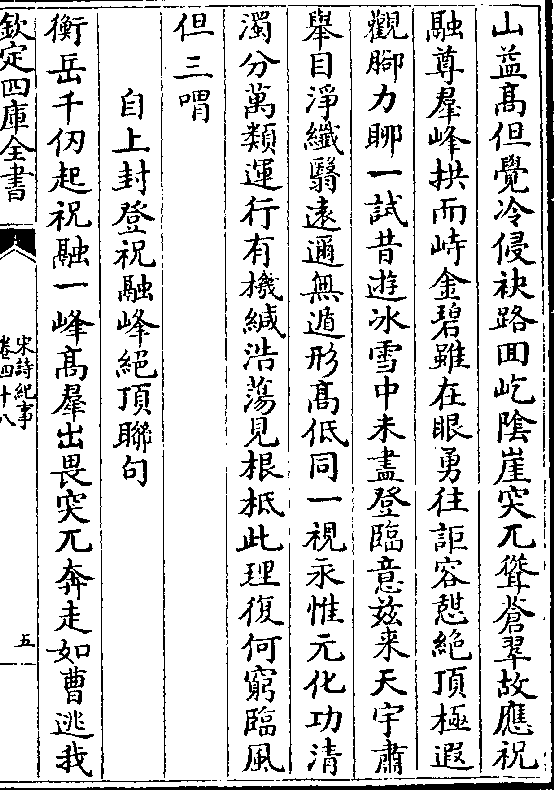 山益髙但覺冷侵袂路囬屹隂崖突兀聳蒼翠故應祝
融尊羣峰拱而峙金碧雖在眼勇往詎容憇絶頂極遐
觀腳力聊一試昔遊冰雪中未盡登臨意兹来天宇肅
舉目淨纖翳逺邇無遁形髙低同一視永惟元化功清
濁分萬類運行有機緘浩蕩見根柢此理復何窮臨風
但三喟
自上封登祝融峰絶頂聯句
衡岳千仞起祝融一峰髙羣出畏突兀奔走如曹逃我
欽定四庫全書
宋詩紀事
卷四十八
五